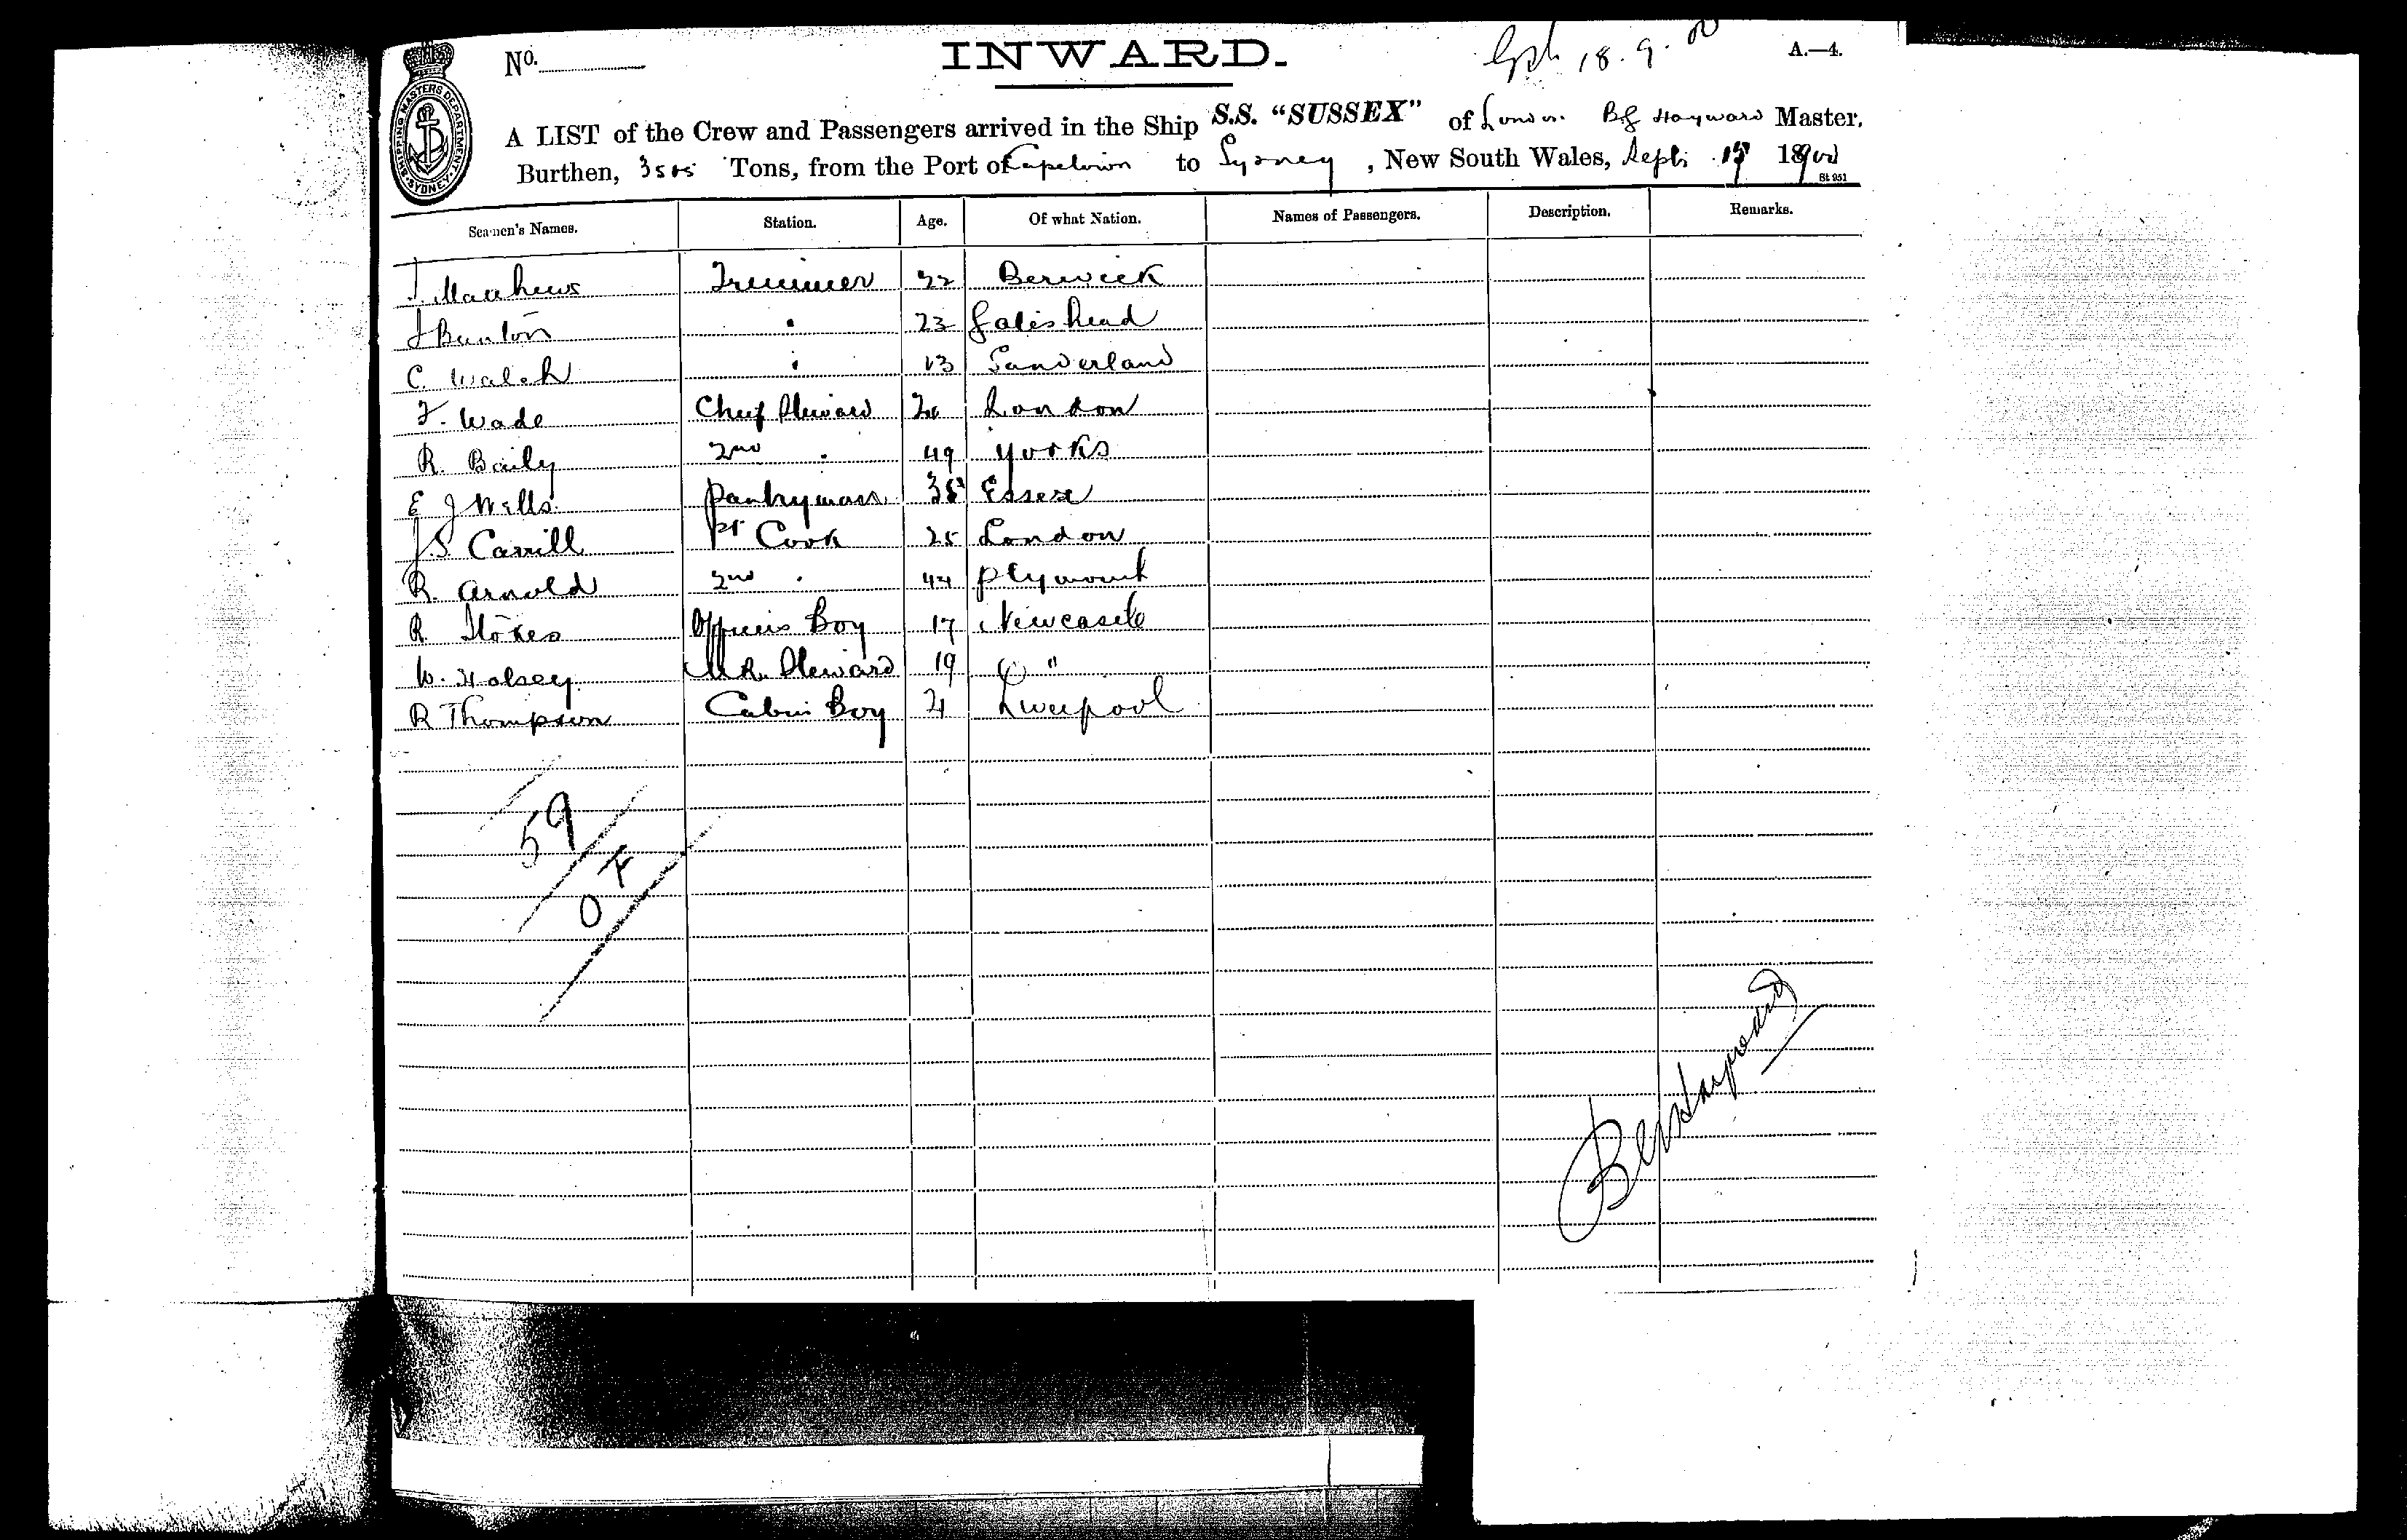 No. INWARD. 18.9.00 A.—4.
SHIPPING MASTERS DEPARTMENT SYDNEY
A LIST of the Crew and Passengers arrived in the Ship S.S. "SUSSEX" of London B G Hayward Master,
Burthen, 3505 Tons, from the Port of Capetown to Sydney, New South Wales, Sept. 17 1900
St 951
Seamen's Names. Station. Age. Of what Nation. Names of Passengers. Description. Remarks.
J. Matthews Trimmer 22 Berwick
J Bunton " 23 Gateshead
C. Walsh " 23 Sunderland
F. Wade Chief Steward Londonn
R. Baily 2nd " 49 Yorks
E J Wells Pantryman 38 Essex
J S. Carrill 1st Cook 25 London
R. Arnold 2nd " 44 Plymouth
R. Stokes Officers Boy 17 Newcastle
W. Halsey M.R. Steward 19 "
R Thompson Cabin Boy 21 Liverpool
59
0